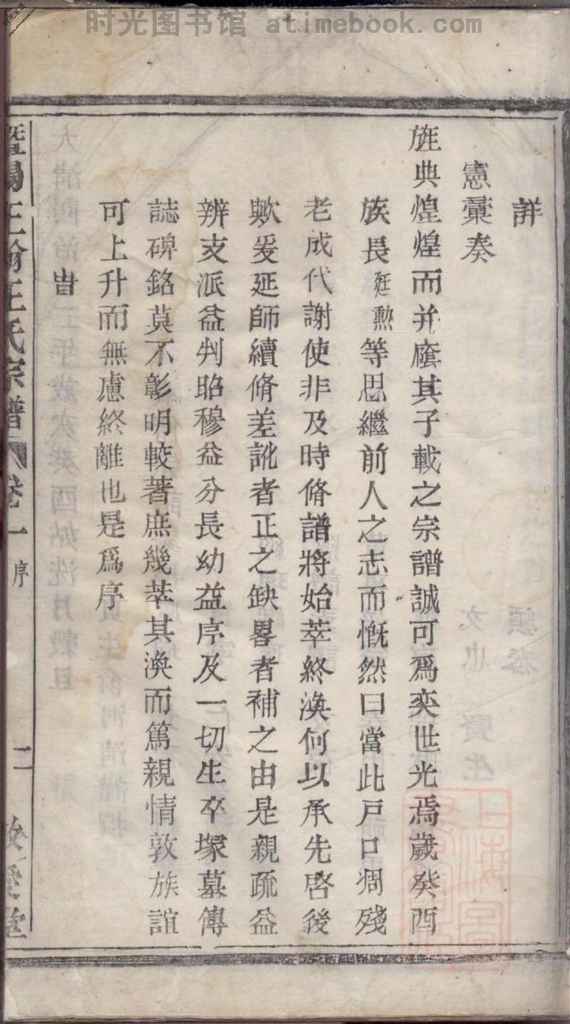 时光图书馆 atimebook.com
詳
憲彙奏
旌典煌煌而并廕其子載之宗譜誠可爲奕世光焉歲癸酉
族長廷勲等思繼前人之志而慨然曰當此戸口凋殘
老成代謝使非及時脩譜將始萃終渙何以承先啓後
歟爰延師續脩差訛者正之缺畧者補之由是親疏益
辨支派益判昭穆益分長幼益序及一切生卒塚墓傳
誌碑銘莫不彰明較著庶幾萃其渙而篤親情敦族誼
可上升而無慮終離也是爲序
旹
王氏宗譜 卷一 序 二